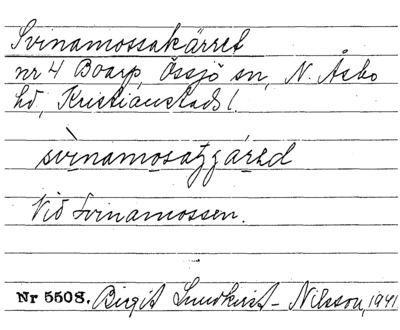 Svinamossakärret
nr 4 Boarp, Össjö sn, N. Åsbo
hd, Kristianstads l.
Vid Svinamossen.
Nr 5508. Birgit Sundkvist-Nilsson, 1941